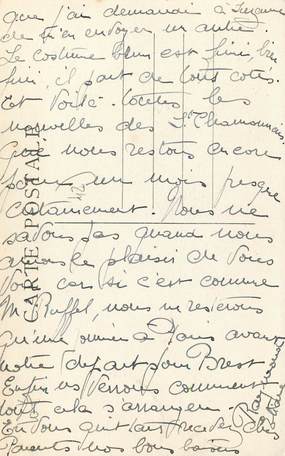 que j'ai demandai à Suzanne
de m'en envoyer un autre.
Le costume bleu est fini, bien
fini, il part de tous cotés.
Et voilà toutes les
nouvelles des St Chamonnais.
Que nous restons encore
pour un mois presque
certainement. Nous ne
savons pas quand nous
aurons le plaisir de vous
voir car si c'est comme
M Buffel, nous ne resterons
qu'une journée à Paris avant
notre départ pour Brest
Enfin ns verrons comment
tout cela s'arrangera.
En vous qui tous recevez Chers
Parents nos bons baisers
Raymonde
CARTE POSTALE